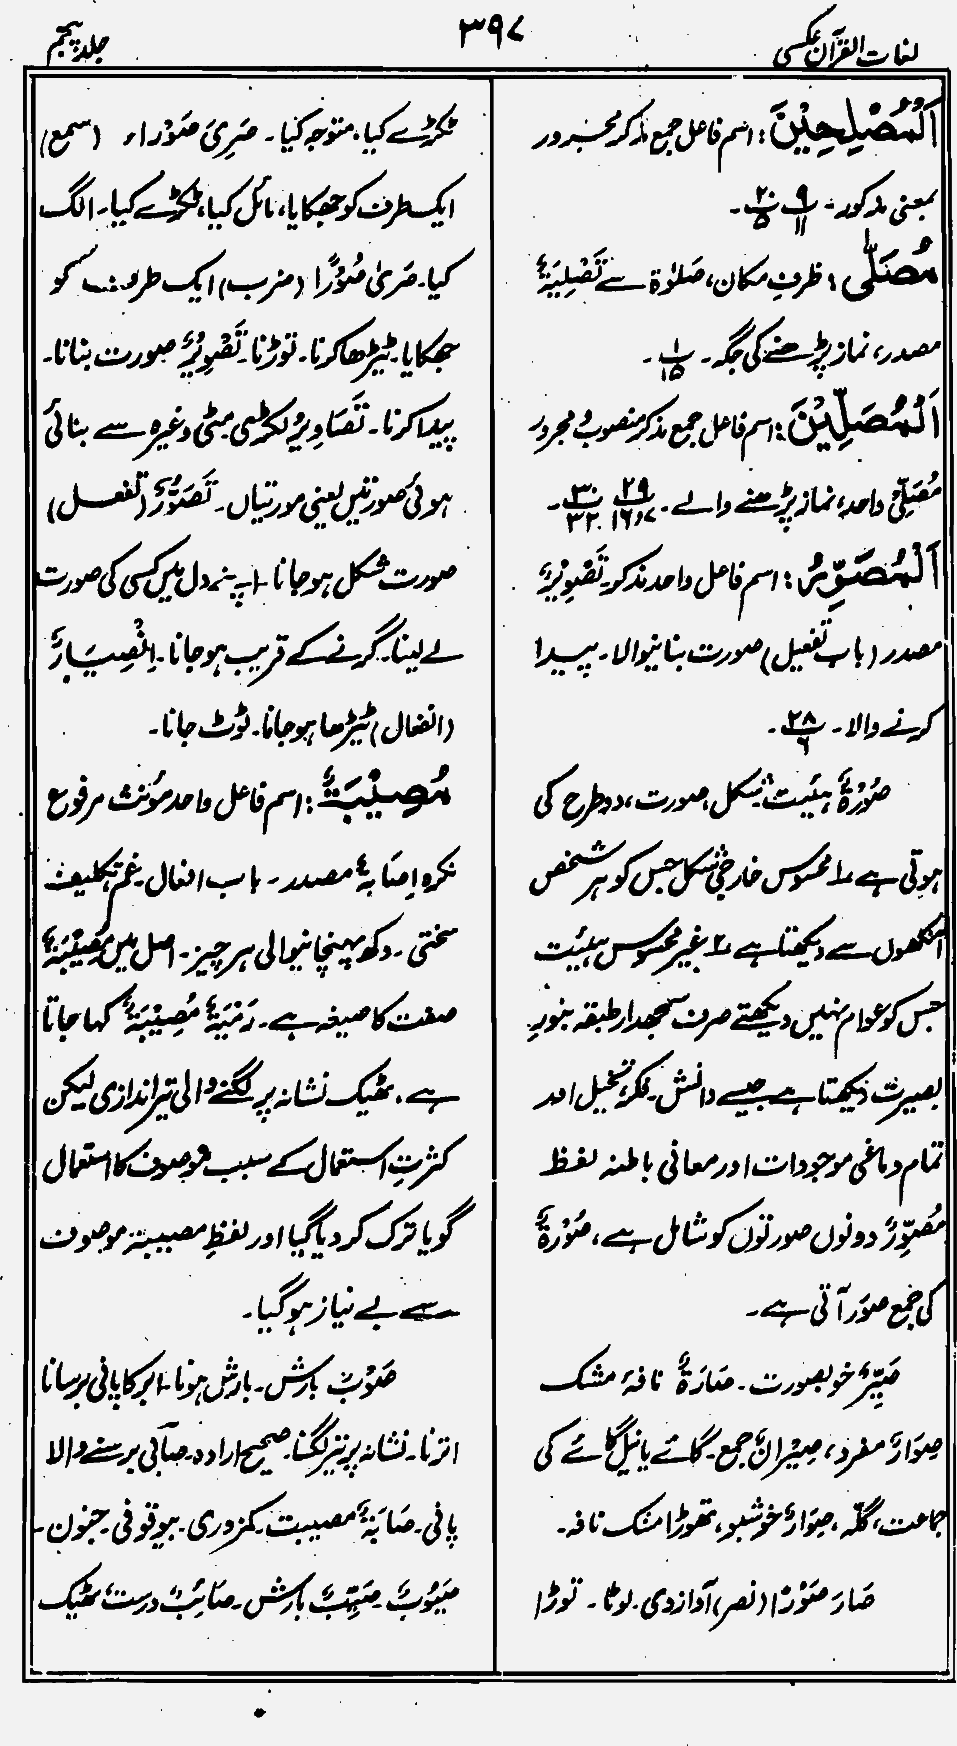 لغات القرآن عکسی
۳۹۷
جلد پنجم
اَلْمُصْلِحِیْنَ : اسم فاعل جمع مذکر مجرور
بمعنی مذکور۔ پ۹/۱۱ پ۲۰/۵۔
مُصَلّٰی : ظرفِ مکان، صَلوٰۃ سے تَصْلِیَۃٌ
مصدر، نماز پڑھنے کی جگہ۔ ۱/۱۵۔
اَلْمُصَلِّیْنَ : اسم فاعل جمع مذکر منصوب و مجرور
مُصَلِّیْ واحد، نماز پڑھنے والے۔ پ۲۹/۱۶،۷ پ۳۰/۳۲۔
اَلْمُصَوِّرُ : اسم فاعل واحد مذکر تَصْوِیْرٌ
مصدر (باب تفعیل) صورت بنانیوالا۔ پیدا
کرنے والا۔ پ۲۸/۶۔
صُوْرَۃٌ ہیئت، شکل، صورت، دو طرح کی
ہوتی ہے ۱ محسوس خارجی شکل جس کو ہر شخص
آنکھوں سے دیکھتا ہے ۲ غیر محسوس ہیئت
جس کو عوام نہیں دیکھتے صرف سمجھدار طبقہ بنورِ
بصیرت دیکھتا ہے جیسے دانش۔ فکر، تخیل اور
تمام دماغی موجودات اور معانی باطنہ لفظ
مُصَوِّرٌ دونوں صورتوں کو شامل ہے، صُوْرَۃٌ
کی جمع صُوَر آتی ہے۔
صَیِّرٌ خوبصورت۔ صَارَۃٌ نافۂ مشک
صِوَارٌ مفرد، صِیْرَانٌ جمع۔ گائے یا نیل گائے کی
جماعت، گلّہ، صِوَارٌ خوشبو، تھوڑا مشک نافہ۔
صَارَ صَوْرًا (نصر) آواز دی۔ لوٹا۔ توڑا
ٹکڑے کیا، متوجہ کیا۔ صَرِیَ صَوْراء (سمع)
ایک طرف کو جھکایا، مائل کیا، ٹکڑے کیا۔ الگ
کیا۔ صَریٰ صُوْرًا (ضرب) ایک طرف کو
جھکایا۔ ٹیڑھا کرنا۔ توڑنا۔ تَصْوِیْرٌ صورت بنانا۔
پیدا کرنا۔ تَصَاوِیْرُ لکڑی مٹی وغیرہ سے بنائی
ہوئی صورتیں یعنی مورتیاں۔ تَصَوُّرٌ (تفعل)
صورت شکل ہو جانا۔ اپنے دل میں کسی کی صورت
لے لینا۔ گرنے کے قریب ہو جانا۔ اِنْصِیَارٌ
(انفعال) ٹیڑھا ہو جانا۔ ٹوٹ جانا۔
مُصِیْبَۃٌ : اسم فاعل واحد مؤنث مرفوع
نکرہ اِصَابَۃٌ مصدر۔ باب افعال۔ غم، تکلیف
سختی۔ دکھ پہنچانیوالی ہر چیز۔ اصل میں مُصِیْبَۃٌ
صفت کا صیغہ ہے۔ رَمْیَۃٌ مُصِیْبَۃٌ کہا جاتا
ہے۔ ٹھیک نشانہ پر لگنے والی تیر اندازی لیکن
کثرتِ استعمال کے سبب موصوف کا استعمال
گویا ترک کر دیا گیا اور لفظِ مصیبۃ موصوف
سے بے نیاز ہو گیا۔
صَوْبٌ بارش۔ بارش ہونا۔ ابر کا پانی برسانا
اترنا۔ نشانہ پر تیر لگنا۔ صحیح ارادہ۔ صآبی برسنے والا
پانی۔ صَابَۃٌ مصیبت۔ کمزوری۔ بیوقوفی۔ جنون۔
صَیُوْبٌ۔ صَیِّبٌ بارش۔ صَائِبٌ درست، ٹھیک